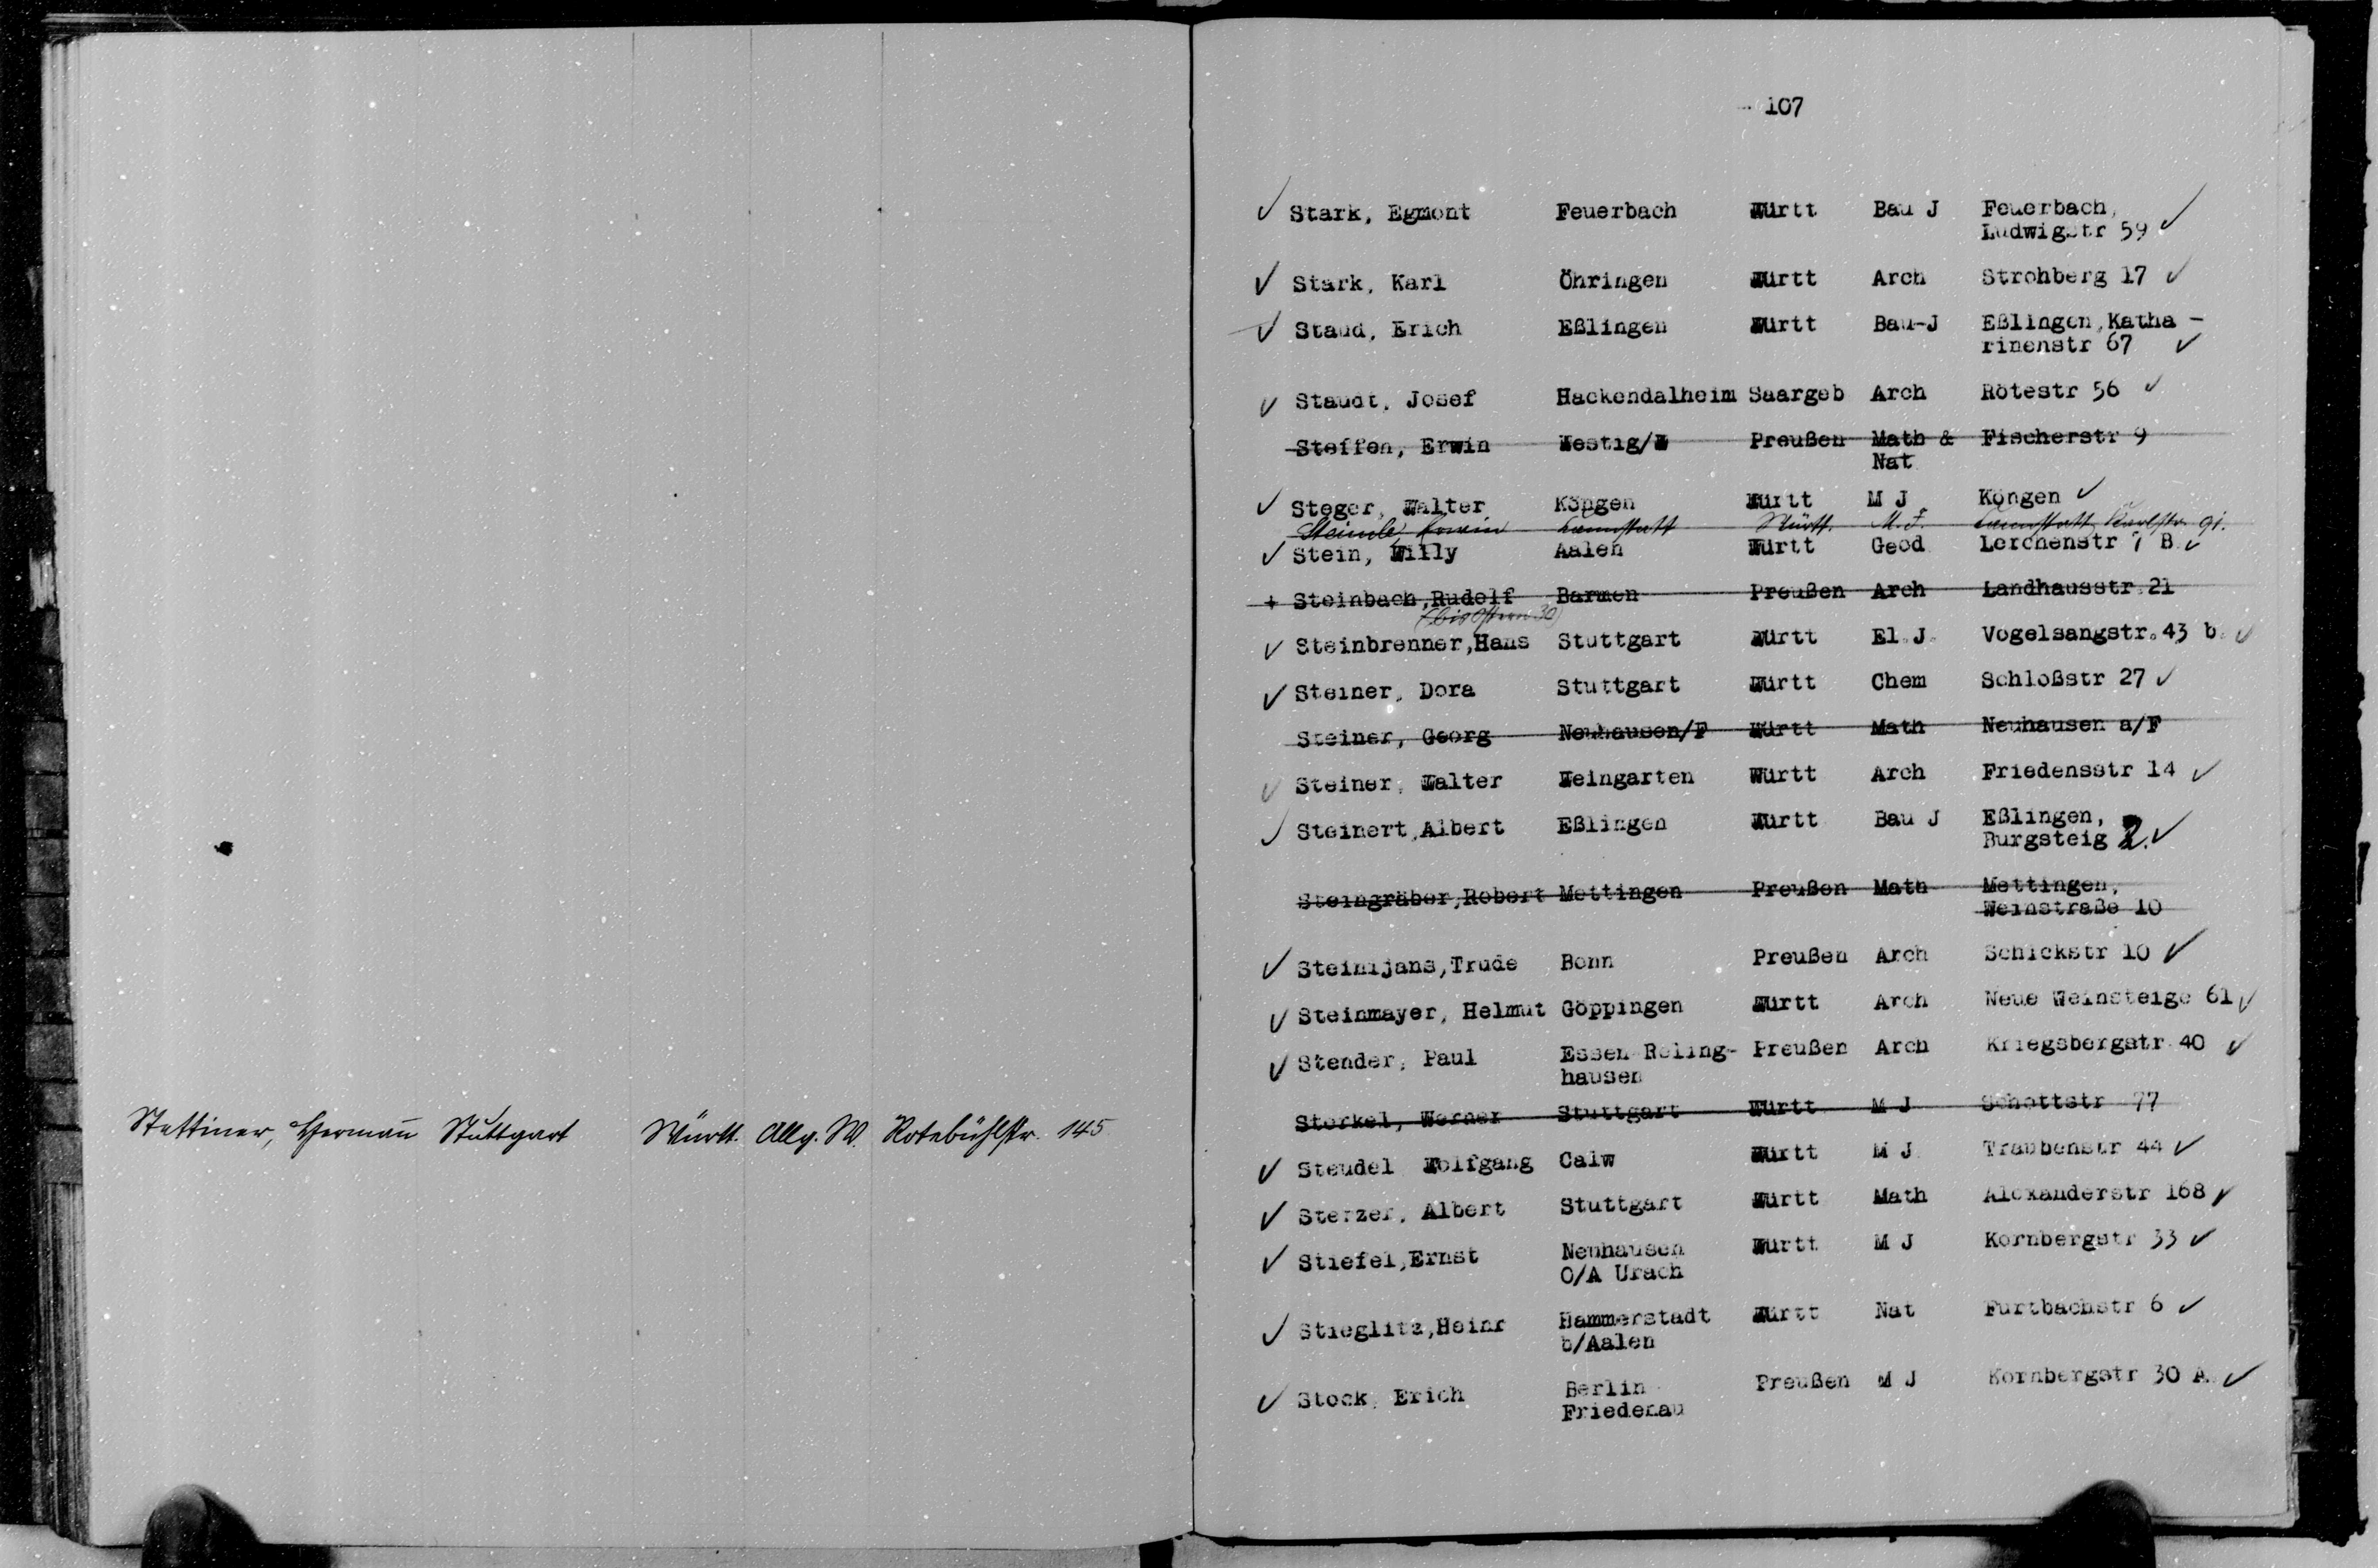 Stettiner, Hermann Stuttgart Württ. Allg. W. Rotebühlstr. 145
107
Stark, Egmont Feuerbach Württ Bau J Feuerbach,
Ludwigstr 59
Stark, Karl Öhringen Württ Arch Strohberg 17
Staud, Erich Eßlingen Württ Bau-J Eßlingen, Katha-
rinenstr 67
Staudt, Josef Hackendalheim Saargeb Arch Rötestr 56
Steffen, Erwin Westig/W Preußen Math & Fischerstr 9
Nat
Steger, Walter Köngen Württ M J Köngen
Steimle, Erwin Cannstatt Württ. M. J. Cannstatt, Karlstr. 91.
Stein, Willy Aalen Württ Geod Lerchenstr 7 B
+ Steinbach, Rudolf Barmen Preußen Arch Landhausstr 21
(bis Ostern 30)
Steinbrenner, Hans Stuttgart Württ El. J. Vogelsangstr. 43 b
Steiner, Dora Stuttgart Württ Chem Schloßstr 27
Steiner, Georg Neuhausen/F Württ Math Neuhausen a/F
Steiner, Walter Weingarten Württ Arch Friedensstr 14
Steinert, Albert Eßlingen Württ Bau J Eßlingen,
Burgsteig 2.
Steingräber, Robert Mettingen Preußen Math Mettingen,
Weinstraße 10
Steinijans, Trude Bonn Preußen Arch Schickstr 10
Steinmayer, Helmut Göppingen Württ Arch Neue Weinsteige 61
Stender, Paul Essen-Reling- Preußen Arch Kriegsbergstr 40
hausen
Sterkel, Werner Stuttgart Württ M J Schottstr 77
Steudel Wolfgang Calw Württ M J Traubenstr 44
Sterzer, Albert Stuttgart Württ Math Alexanderstr 168
Stiefel, Ernst Neuhausen Württ M J Kornbergstr 33
O/A Urach
Stieglitz, Heinr Hammerstadt Württ Nat Furtbachstr 6
b/Aalen
Stock, Erich Berlin Preußen M J Kornbergstr 30 A.
Friedenau